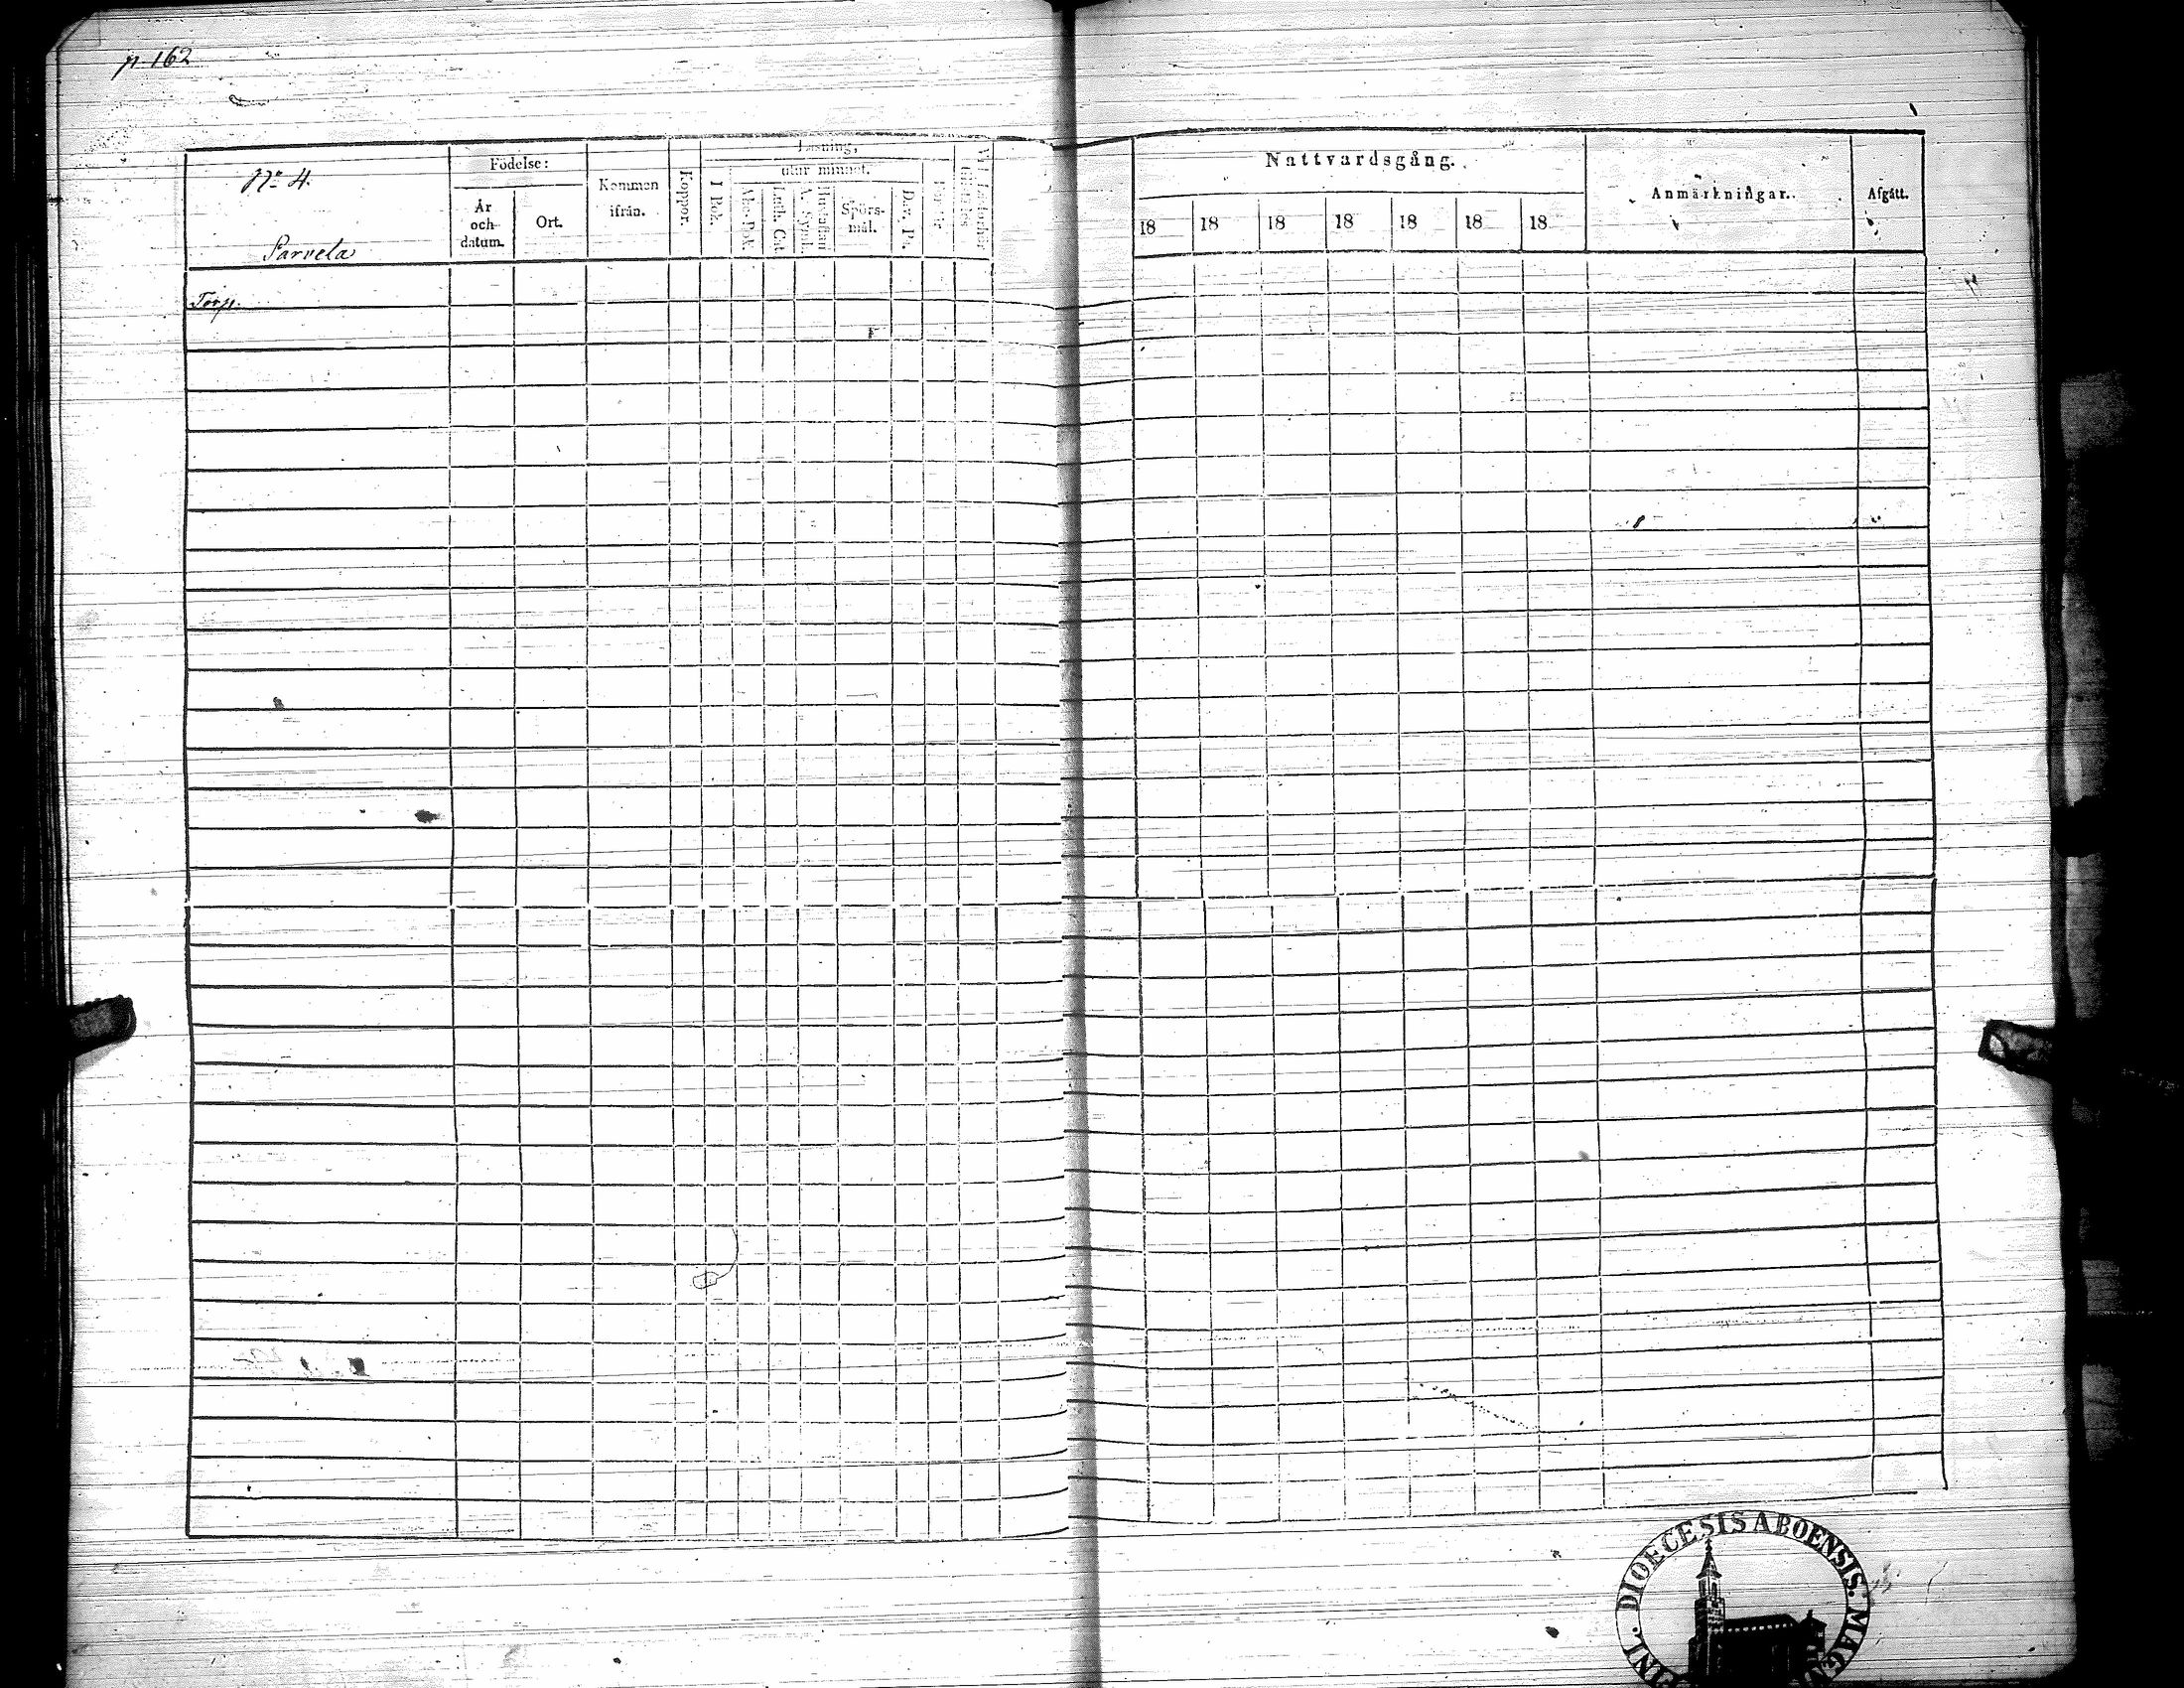 p. 162
No 4.
Parvela
Torp.
Födelse:
År
och
datum.
Ort.
Kommen
ifrån.
Koppor.
Läsning,
utur minnet.
I Bok.
Spörs-
mål.
Nattvardsgång.
18 18 18 18 18 18 18
Anmärkningar.
Afgått.
DIOECESIS ABOENSIS.